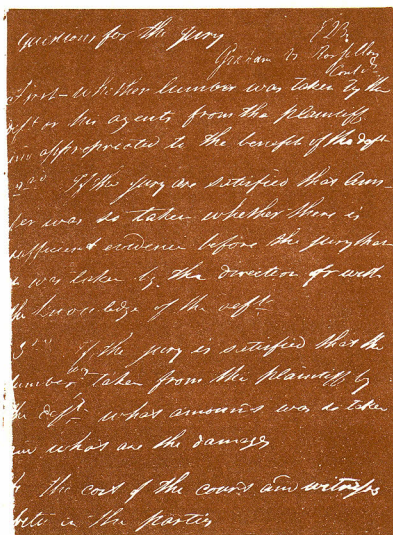 Questions for the jury
Graham vs
First - whether lumber was taken by the
deft or his agents from the plaintiff
appropriated to the benefit of the deft
2nd If the jury are satisfied that lum-
ber was so taken whether there is
sufficient evidence before the jury that
it was taken by the direction or with
the knowledge of the deft
3rd If the jury is satisfied that the
lumber was taken from the plaintiff by
the deft what amount was so taken
what are the damages
the cost of the court and witness
the parties